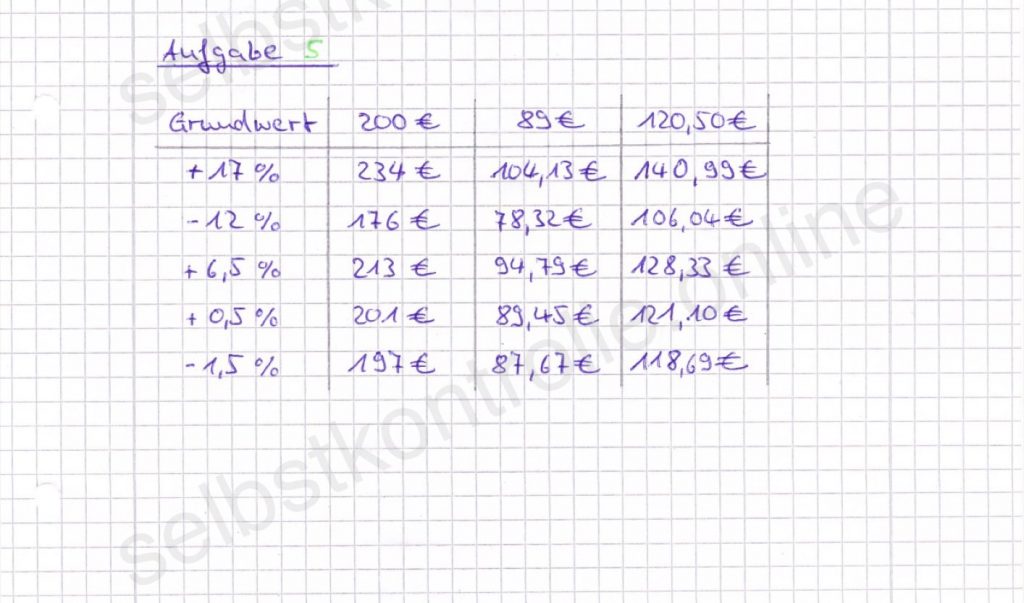 Aufgabe 5
Grundwert 200 € 89 € 120,50 €
+ 17 % 234 € 104,13 € 140,99 €
- 12 % 176 € 78,32 € 106,04 €
+ 6,5 % 213 € 94,79 € 128,33 €
+ 0,5 % 201 € 89,45 € 121,10 €
- 1,5 % 197 € 87,67 € 118,69 €
selbstkontrolle.online
selbst